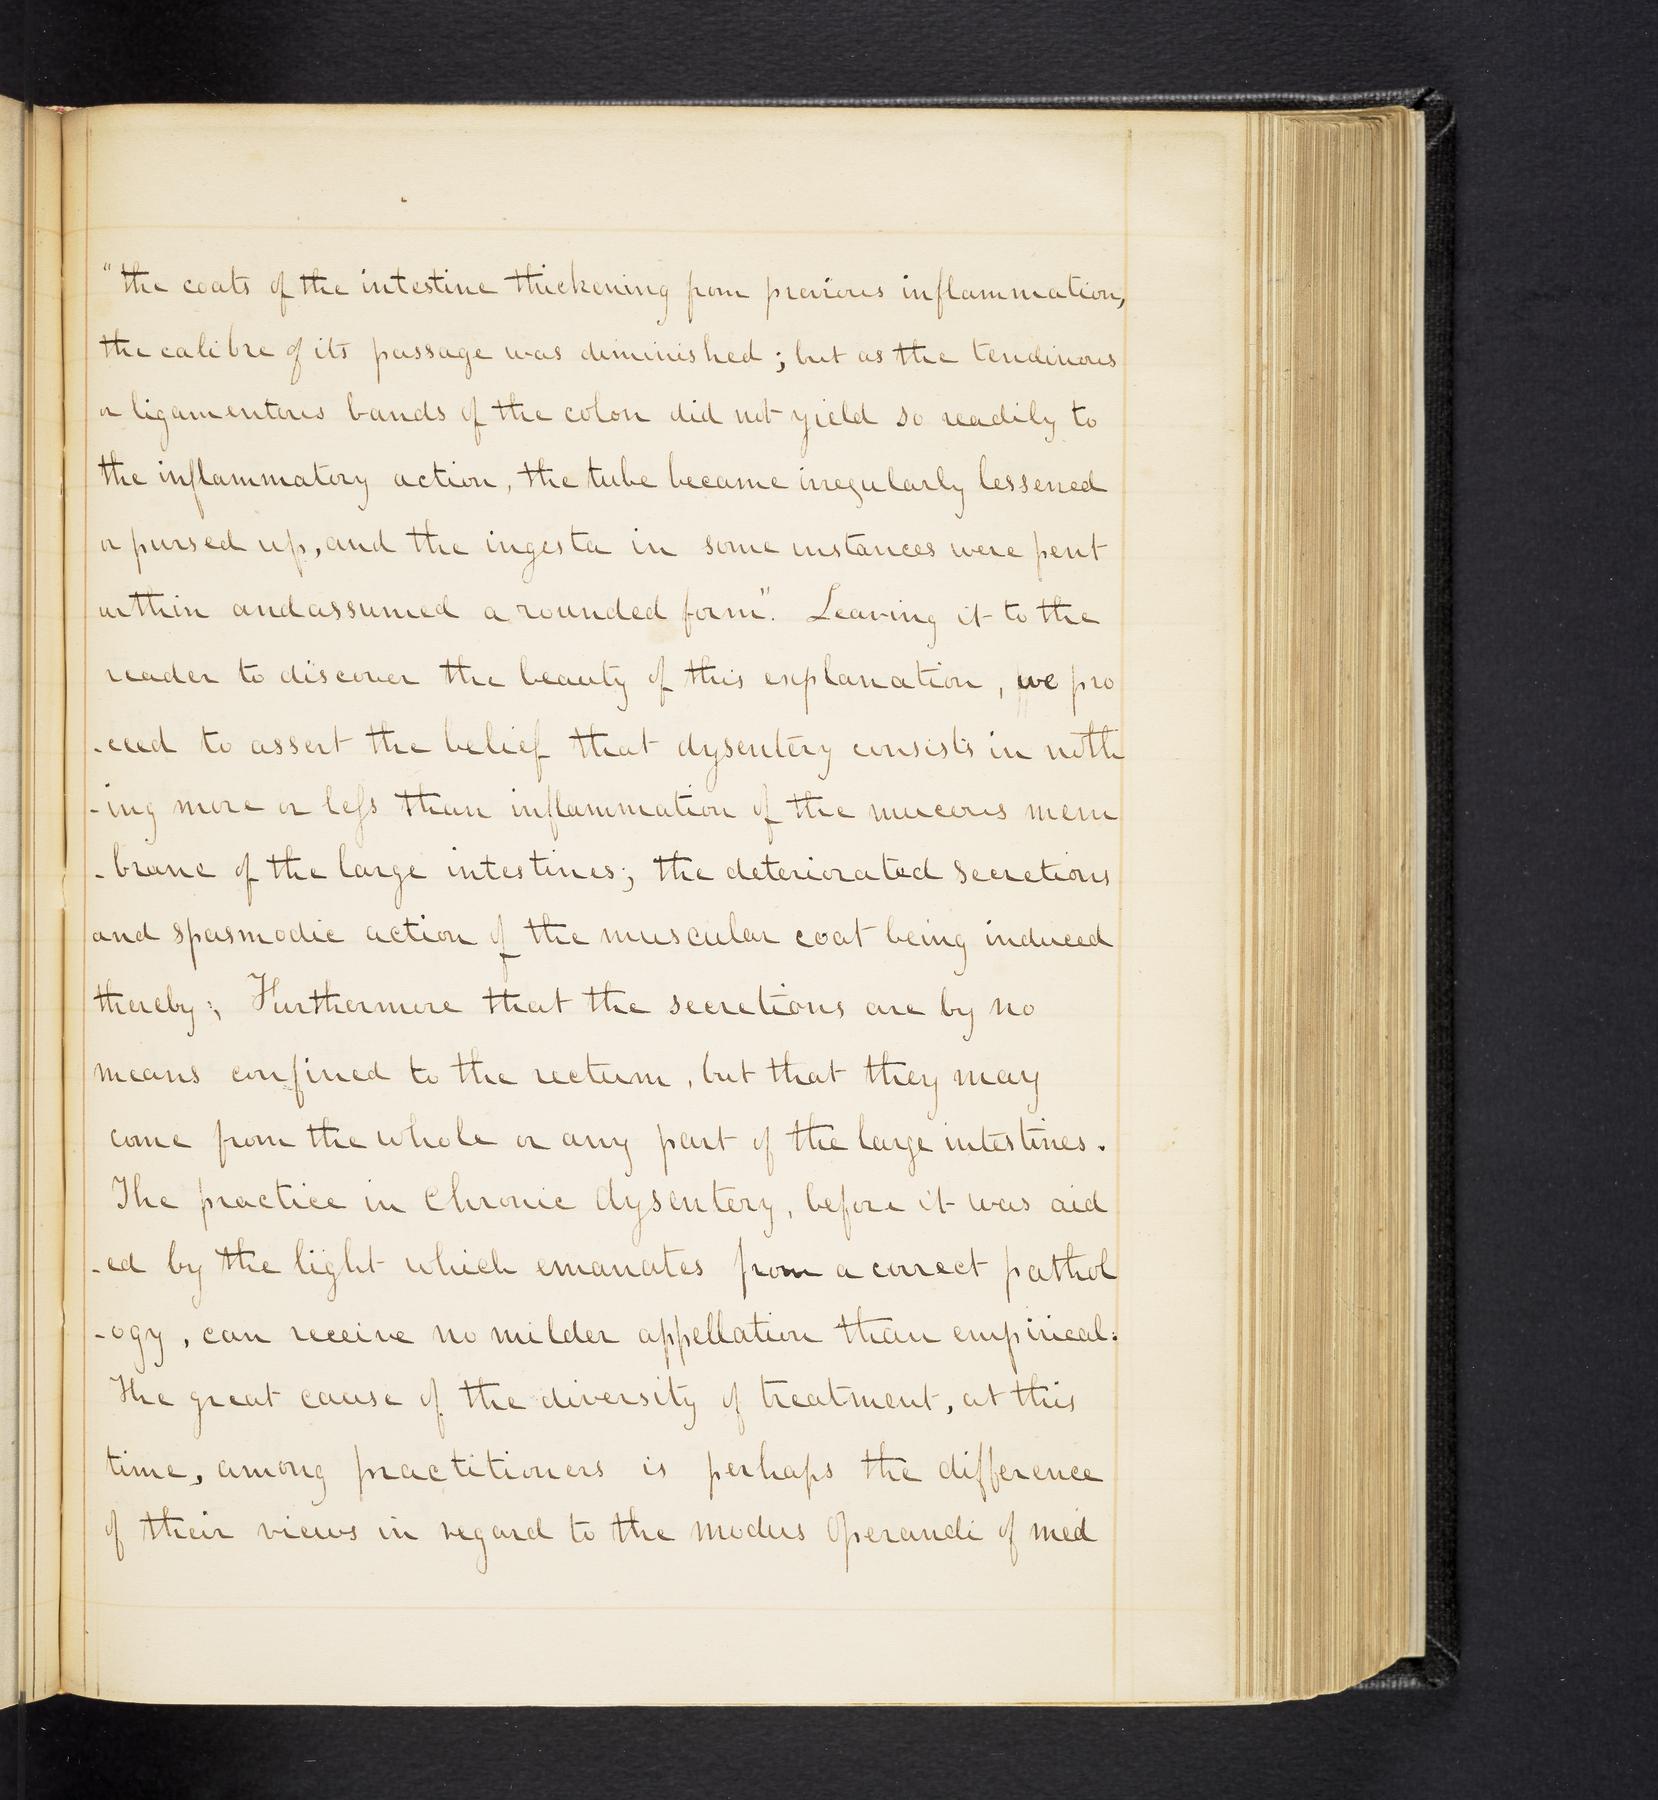 "the coats of the intestine thickening from previous inflammation,
the calibre of its passage was diminished; but as the tendinous
or ligamentous bands of the colon did not yield so readily to
the inflammatory action, the tube became irregularly lessened
or pursed up, and the ingesta in some instances were pent
within and assumed a rounded form". Leaving it to the
reader to discover the beauty of this explanation, we pro
-ceed to assert the belief that dysentery consists in noth
-ing more or less than inflammation of the mucous mem
-brane of the large intestines; the deteriorated secretions
and spasmodic action of the muscular coat being induced
thereby; Furthermore that the secretions are by no
means confined to the rectum, but that they may
come from the whole or any part of the large intestines.
The practice in Chronic dysentery, before it was aid
-ed by the light which emanates from a correct pathol
-ogy, can receive no milder appellation than empirical:
The great cause of the diversity of treatment, at this
time, among practitioners is perhaps the difference
of their views in regard to the modus operandi of med